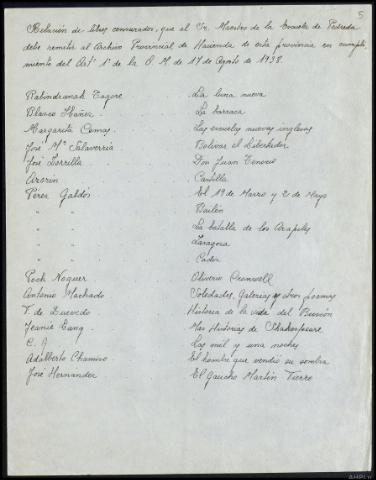 5
Relación de libros censurados, que el Sr. Maestro de la Escuela de Pedreda
debe remitir al Archivo Provincial de Hacienda de esta provincia en cumpli-
miento del Artº 1º de la O. M. de 17 de Agosto de 1938.
Rabindranah Tagore La luna nueva
Blasco Ibañez La barraca
Margarita Comas Las escuelas nuevas inglesas
José Mª Salaverria Bolivar el Libertador
José Zorrilla Don Juan Tenorio
Azorin Castilla
Pérez Galdós El 19 de Marzo y 2 de Mayo
" " Bailén
" " La batalla de los Arapiles
" " Zaragoza
" " Cadiz
Poch Noguer Oliverio Cromwell
Antonio Machado Soledades, Galerias y otros poemas
F. de Quevedo Historia de la vida del Buscón
Jeanie Lang Mas Historias de Shakespeare
C. G. Las mil y una noches
Adalberto Chamiso El hombre que vendió su sombra
José Hernandez El Gaucho Martin Fierro
AHPLU